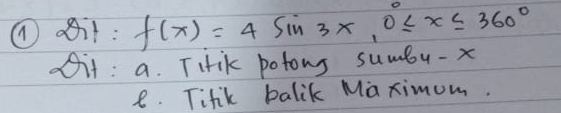 ① Dit : f(x) = 4 Sin 3x , 0° ≤ x ≤ 360°
Dit : a. Titik potong sumbu-x
b. Titik balik Maximum.